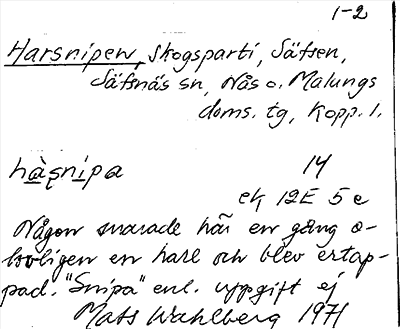 1-2
Harsnipen, skogsparti, Säfsen,
Säfsnäs sn, Nås o. Malungs
doms. tg, Kopp. l.
hàşnipa 14
ek 12E 5e
Någon snarade här en gång o-
lovligen en hare och blev ertap-
pad. "Snipa" enl. uppgift ej
Mats Wahlberg 1971